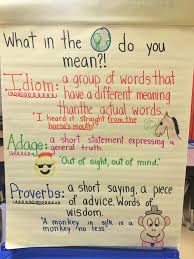 What in the do you
mean?!
Idiom: a group of words that
have a different meaning
than the actual words.
"I heard it straight from the
horse's mouth"
Adage: a short statement expressing a
general truth.
"Out of sight, out of mind."
Proverbs: a short saying, a piece
of advice. Words of
wisdom.
"A monkey in silk is a
monkey no less."